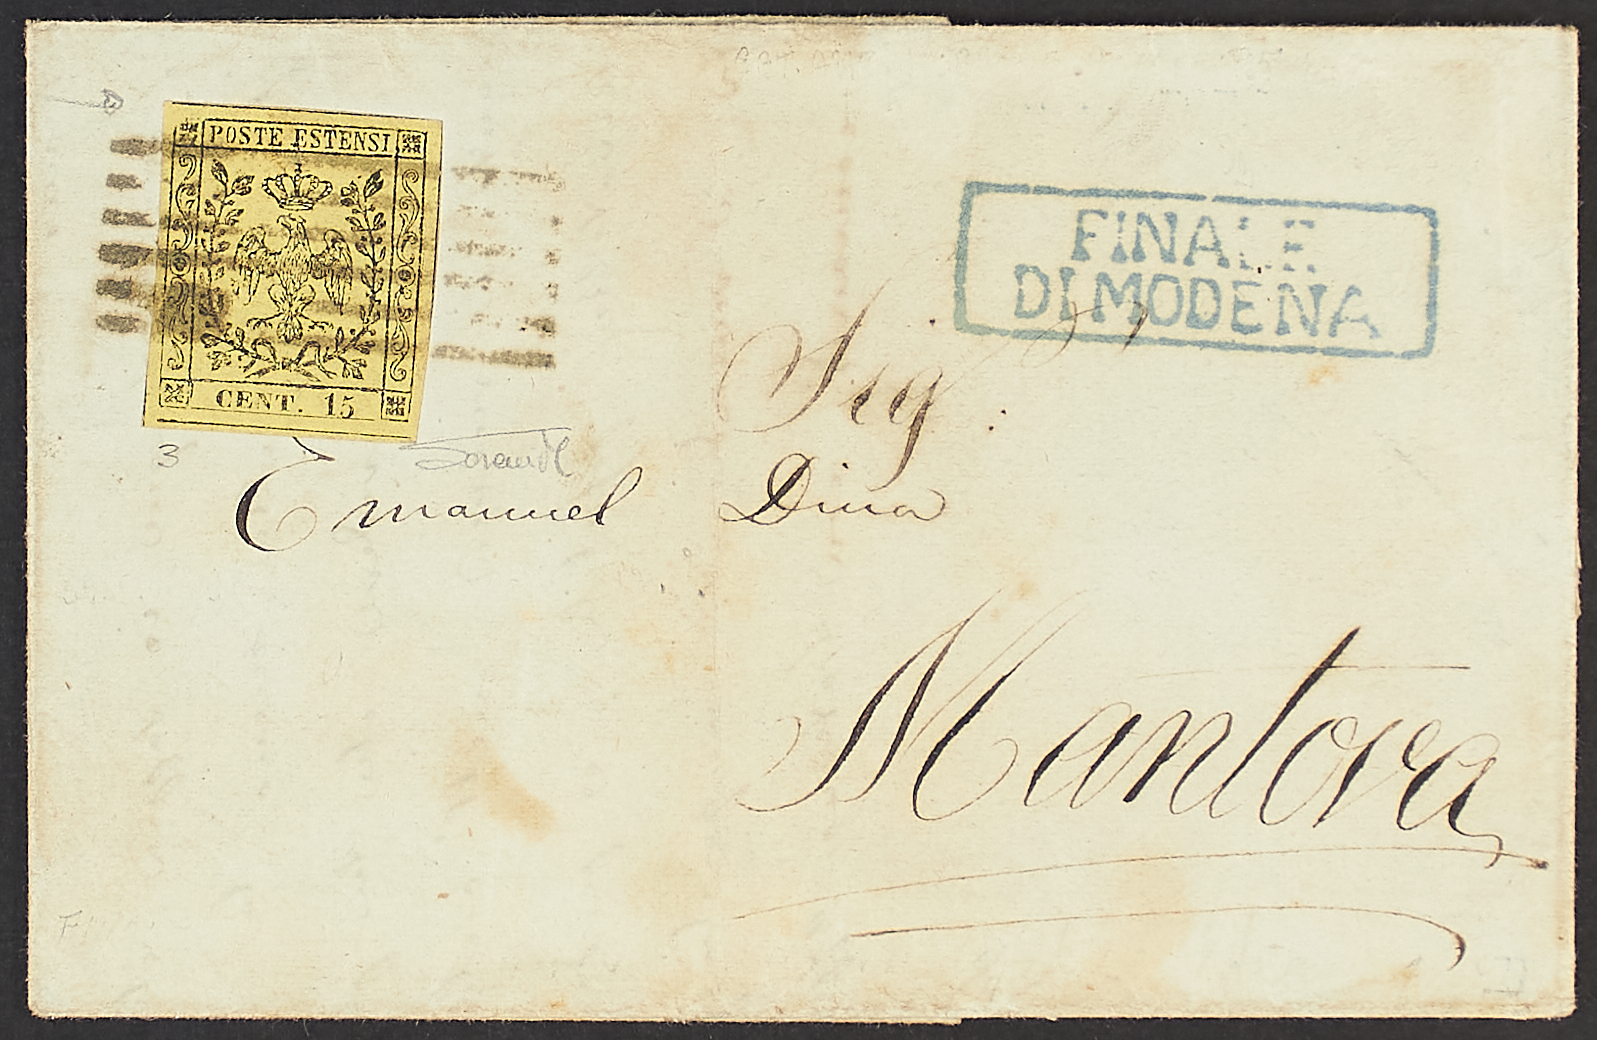 POSTE ESTENSI
CENT. 15
FINALE
DI MODENA
Sig.
3
Emanuel Dina
Mantova